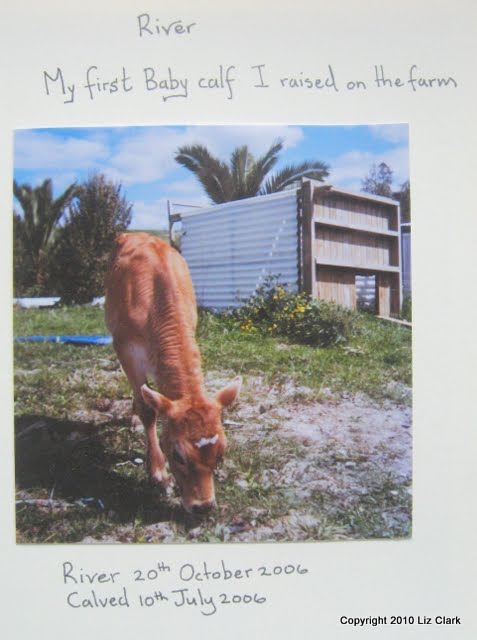 River
My first Baby calf I raised on the farm
River 20th October 2006
Calved 10th July 2006
Copyright 2010 Liz Clark